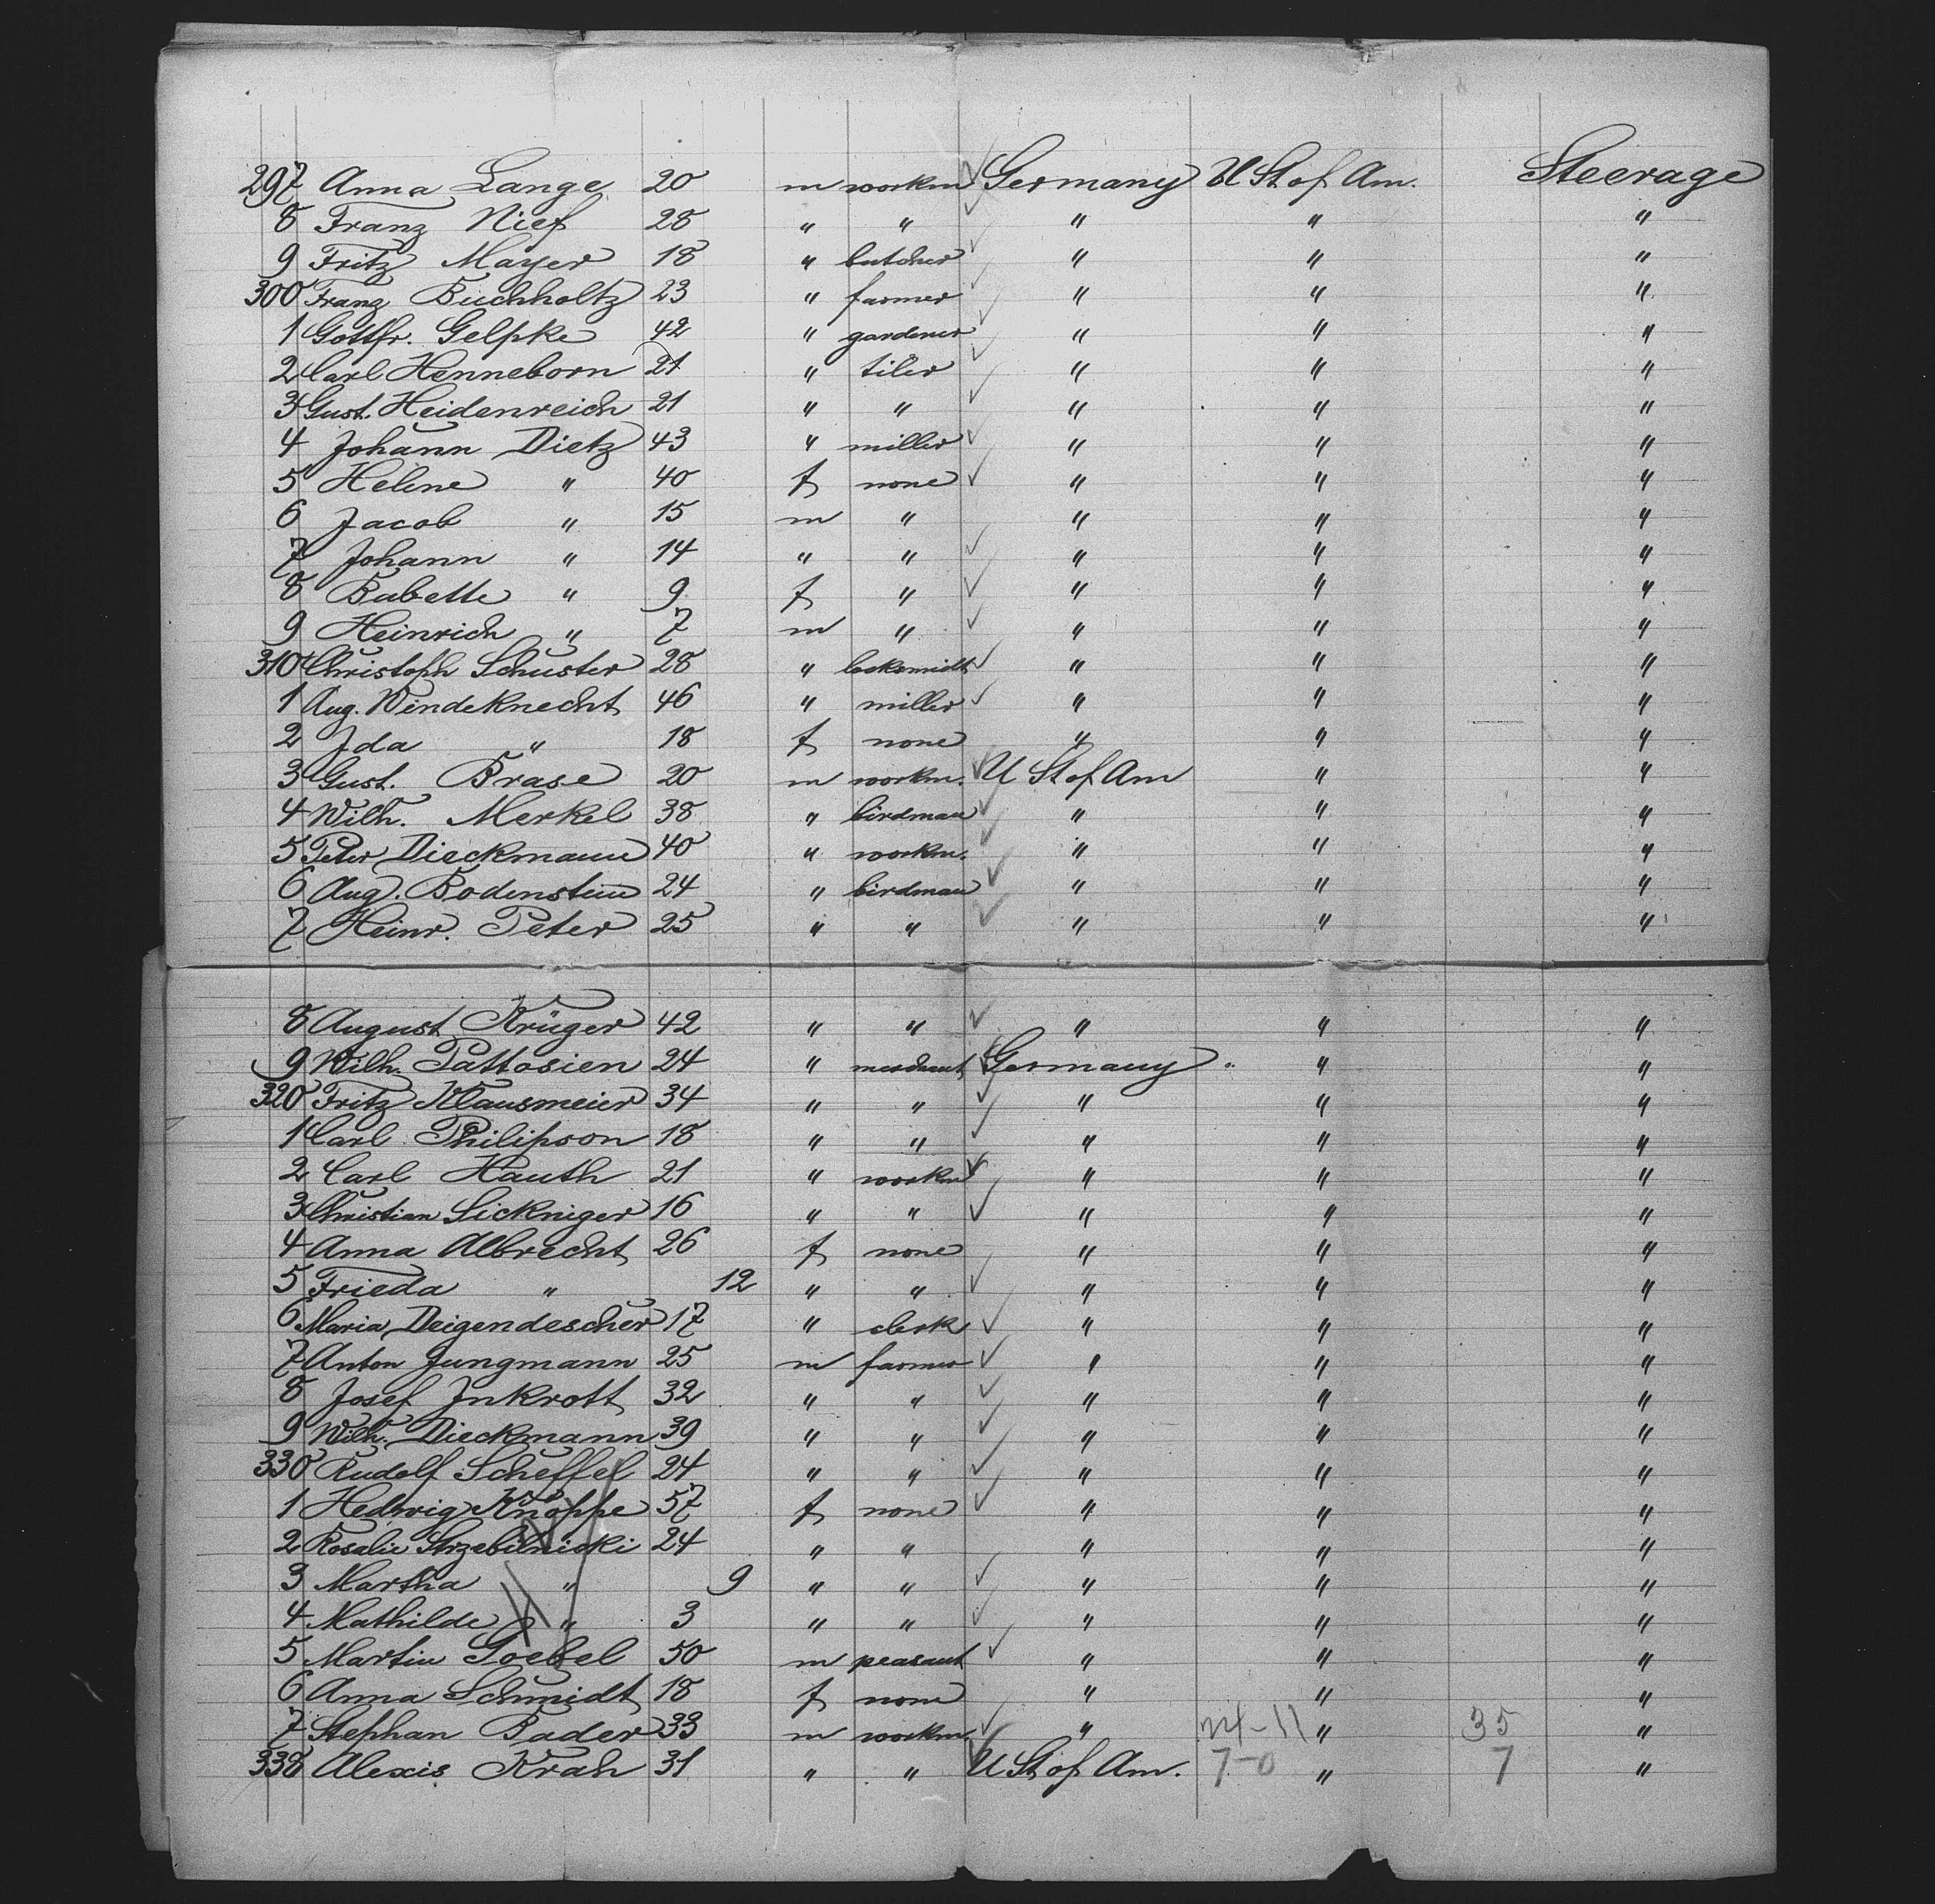 297 Anna Lange 20 m workm Germany U St of Am. Steerage
8 Franz Nief 28 " " " " "
9 Fritz Mayer 18 " butcher " " "
300 Franz Buchholtz 23 " farmer " " "
1 Gottfr. Gelpke 42 " gardener " " "
2 Carl Henneborn 21 " tiler " " "
3 Gust. Heidenreich 21 " " " " "
4 Johann Dietz 43 " miller " " "
5 Helene " 40 f none " " "
6 Jacob " 15 m " " " "
7 Johann " 14 " " " " "
8 Babette " 9 f " " " "
9 Heinrich " 7 m " " " "
310 Christoph Schuster 28 " loksmidt " " "
1 Aug. Windeknecht 46 " miller " " "
2 Ida " 18 f none " " "
3 Gust. Brase 20 m workm. U St of Am " "
4 Wilh. Merkel 38 " birdman " " "
5 Peter Dieckmann 40 " workm. " " "
6 Aug. Bodenstein 24 " birdman " " "
7 Heinr. Peter 25 " " " " "
8 August Krüger 42 " " " " "
9 Wilh. Pattosien 24 " merchant Germany " "
320 Fritz Klausmeier 34 " " " " "
1 Carl Philipson 18 " " " " "
2 Carl Hauth 21 " workm " " "
3 Christian Sickniger 16 " " " " "
4 Anna Albrecht 26 f none " " "
5 Frieda " 12 " " " " "
6 Maria Deigendescher 17 " clerk " " "
7 Anton Jungmann 25 m farmer " " "
8 Josef Inkrott 32 " " " " "
9 Wilh. Dieckmann 39 " " " " "
330 Rudolf Scheffel 24 " " " " "
1 Hedwig Knoppe 57 f none " " "
2 Rosalie 24 " " " " "
3 Martha " 9 " " " " "
4 Mathilde " 3 " " " " "
5 Martin Goebel 50 m peasant " " "
6 Anna Schmidt 18 f none " " "
7 Stephan Bader 33 m workm " 24-11 " 35 "
338 Alexis Krah 31 " " U St of Am. 7-0 " 7 "